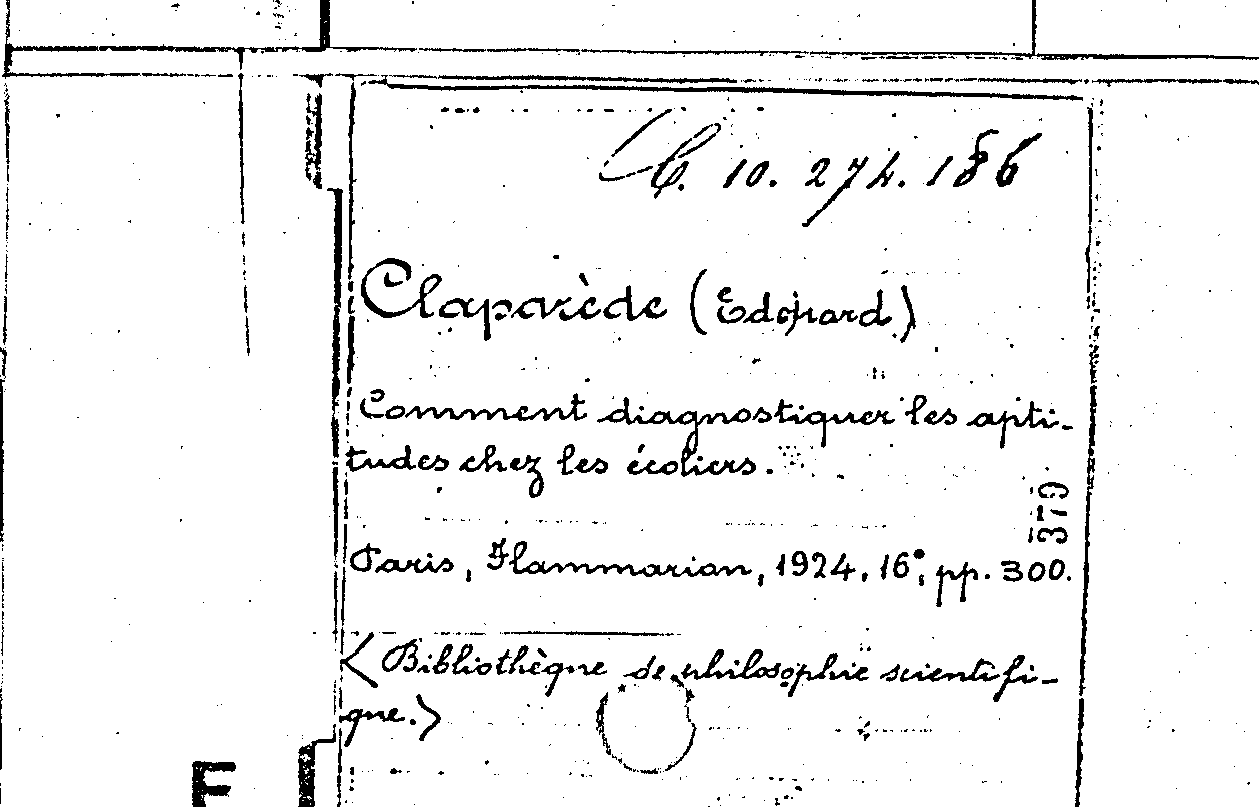 C. 10. 274. 186
Claparède (Edouard)
Comment diagnostiquer les apti-
tudes chez les écoliers.
379
Paris, Flammarion, 1924, 16°, pp. 300.
< Bibliothèque de philosophie scientifi-
que.>
E